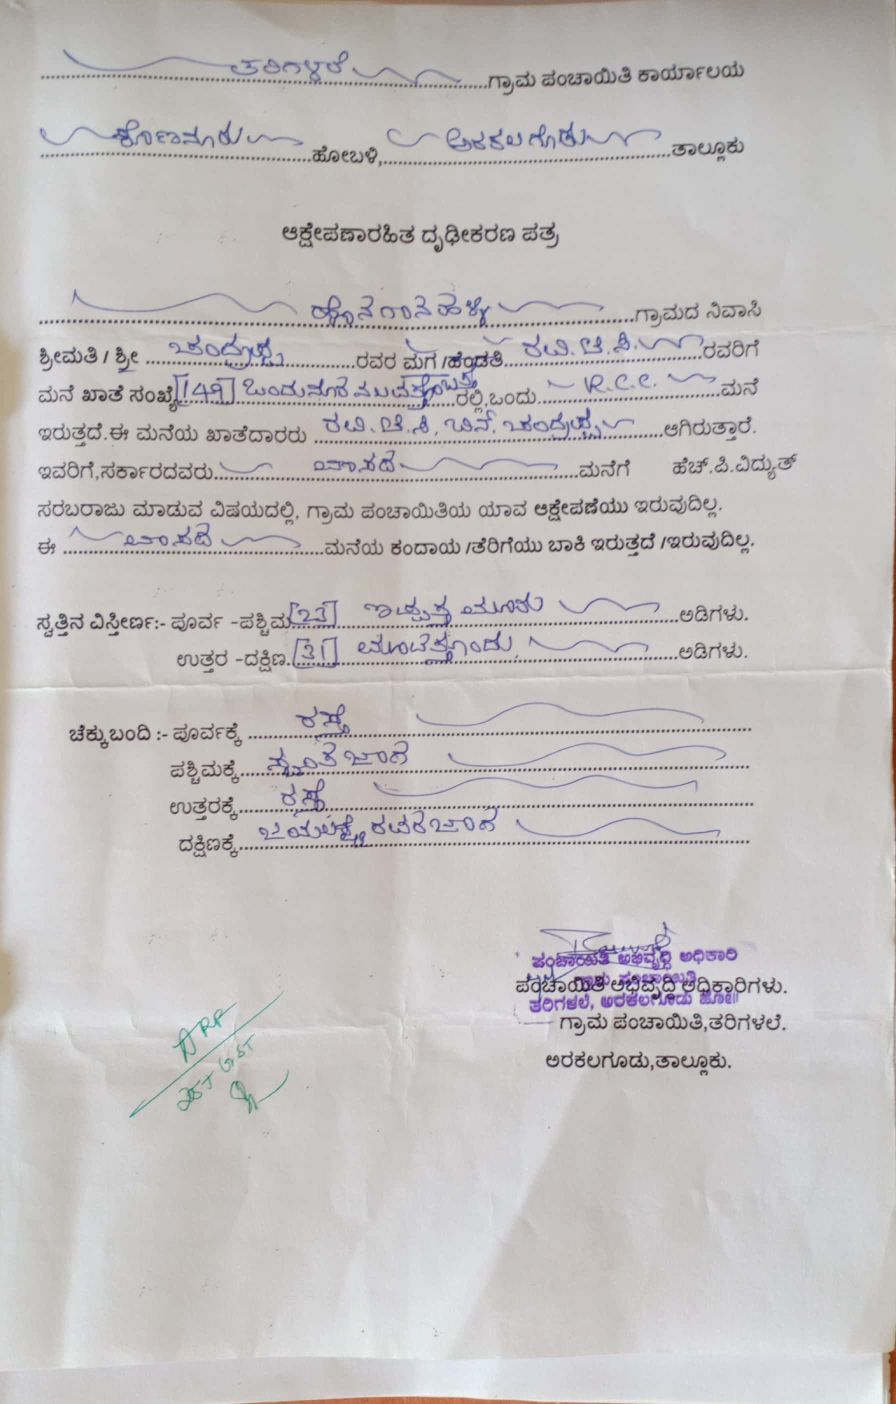 ತರಿಗಳಲೆ ಗ್ರಾಮ ಪಂಚಾಯಿತಿ ಕಾರ್ಯಾಲಯ
ಕೊಣನೂರು ಹೋಬಳಿ, ಅರಕಲಗೂಡು ತಾಲ್ಲೂಕು
ಆಕ್ಷೇಪಣಾರಹಿತ ದೃಢೀಕರಣ ಪತ್ರ
ಗ್ರಾಮದ ನಿವಾಸಿ
ಶ್ರೀಮತಿ / ಶ್ರೀ ಚಂದ್ರಪ್ಪ ರವರ ಮಗ /ಹೆಂಡತಿ ರವಿ. ಟಿ. ಸಿ. ರವರಿಗೆ
ಮನೆ ಖಾತೆ ಸಂಖ್ಯೆ [149] ರಲ್ಲಿ,ಒಂದು R.C.C. ಮನೆ
ಇರುತ್ತದೆ.ಈ ಮನೆಯ ಖಾತೆದಾರರು ರವಿ. ಟಿ. ಸಿ. ಬಿನ್. ಚಂದ್ರಪ್ಪ ಆಗಿರುತ್ತಾರೆ.
ಇವರಿಗೆ,ಸರ್ಕಾರದವರು ವಾಸದ ಮನೆಗೆ ಹೆಚ್.ಪಿ.ವಿದ್ಯುತ್
ಸರಬರಾಜು ಮಾಡುವ ವಿಷಯದಲ್ಲಿ, ಗ್ರಾಮ ಪಂಚಾಯಿತಿಯ ಯಾವ ಆಕ್ಷೇಪಣೆಯು ಇರುವುದಿಲ್ಲ.
ಈ ವಾಸದ ಮನೆಯ ಕಂದಾಯ /ತೆರಿಗೆಯು ಬಾಕಿ ಇರುತ್ತದೆ /ಇರುವುದಿಲ್ಲ.
ಸ್ವತ್ತಿನ ವಿಸ್ತೀರ್ಣ:- ಪೂರ್ವ -ಪಶ್ಚಿಮ [23] ಇಪ್ಪತ್ತ ಮೂರು ಅಡಿಗಳು.
ಉತ್ತರ -ದಕ್ಷಿಣ. [31] ಮೂವತ್ತೊಂದು ಅಡಿಗಳು.
ಚೆಕ್ಕುಬಂದಿ :- ಪೂರ್ವಕ್ಕೆ ರಸ್ತೆ
ಪಶ್ಚಿಮಕ್ಕೆ ಸ್ವಂತ ಜಾಗ
ಉತ್ತರಕ್ಕೆ ರಸ್ತೆ
ದಕ್ಷಿಣಕ್ಕೆ ಜಯಲಕ್ಷ್ಮಿ ರವರ ಜಾಗ
ಪಂಚಾಯಿತಿ ಅಭಿವೃದ್ಧಿ ಅಧಿಕಾರಿ
ಪಂಚಾಯಿತಿ ಅಭಿವೃದ್ದಿ ಅಧಿಕಾರಿಗಳು.
ಗ್ರಾಮ ಪಂಚಾಯಿತಿ
ತರಿಗಳಲೆ, ಅರಕಲಗೂಡು ತಾ||
ಗ್ರಾಮ ಪಂಚಾಯಿತಿ,ತರಿಗಳಲೆ.
ಅರಕಲಗೂಡು,ತಾಲ್ಲೂಕು.